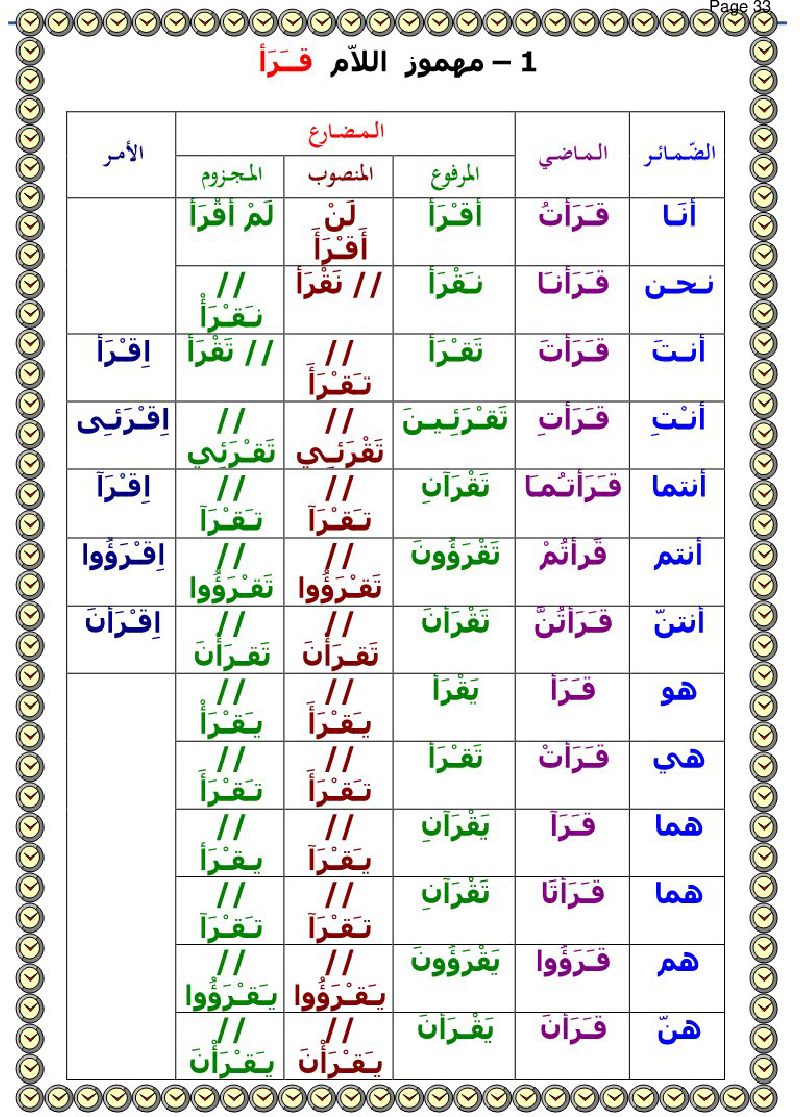 Page 33
1 – مهموز اللاّم قــَرَأ
الضّمائر الماضي المضارع الأمر
المرفوع المنصوب المجزوم
أنَـا قـَرَأتُ أقـْرَأ لَنْ أَقـْرَأَ لَمْ أقْرَأ
نـحـن قـَرَأنـَا نـَقْرَأ // نَقْرَأ // نـَقـْرَأْ
أنـتَ قـَرَأتَ تَقـْرَأ // تـَقـْرَأَ // تَقْرَأ اِقـْرَأ
أنـْتِ قـَرَأتِ تَقـْرَئِـيـنَ // تَقْرَئِـي // تَقـْرَئِي اِقـْرَئـِى
أنتما قـَرَأتـُمـَا تَقْرَآنِ // تـَقـْرَآ // تـَقـْرَآ اِقـْرَآ
أنتم قَرأتُمْ تَقْرَؤُونَ // تَقـْرَؤُوا // تَقـْرَؤُوا اِقـْرَؤُوا
أنتنّ قـَرَأتُنَّ تَقْرَأنَ // تَقـرَأْنَ // تَقـرَأْنَ اِقـْرَأنَ
هو قـَرَأ يَقْرَأ // يـَقـْرَأَ // يـَقـْرَأْ
هـي قـَرَأتْ تَقـْرَأ // تـَقـْرَأَ // تـَقـْرَأَ
هما قـَرَآ يَقْرَآنِ // يـَقـْرَآ // يـَقـْرَأ
هما قـَرَأتَا تَقْرَآنِ // تـَقـْرَآ // تـَقـْرَآ
هم قـَرَؤُوا يَقْرَؤُونَ // يـَقـْرَؤُوا // يـَقـْرَؤُوا
هنّ قـَرَأنَ يَقْرَأنَ // يـَقـْرَأْنَ // يـَقـْرَأْنَ